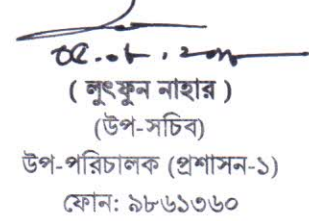 ( লুৎফুন নাহার )
(উপ-সচিব)
উপ-পরিচালক (প্রশাসন-১)
ফোন: ৯৮৬১৩৬০